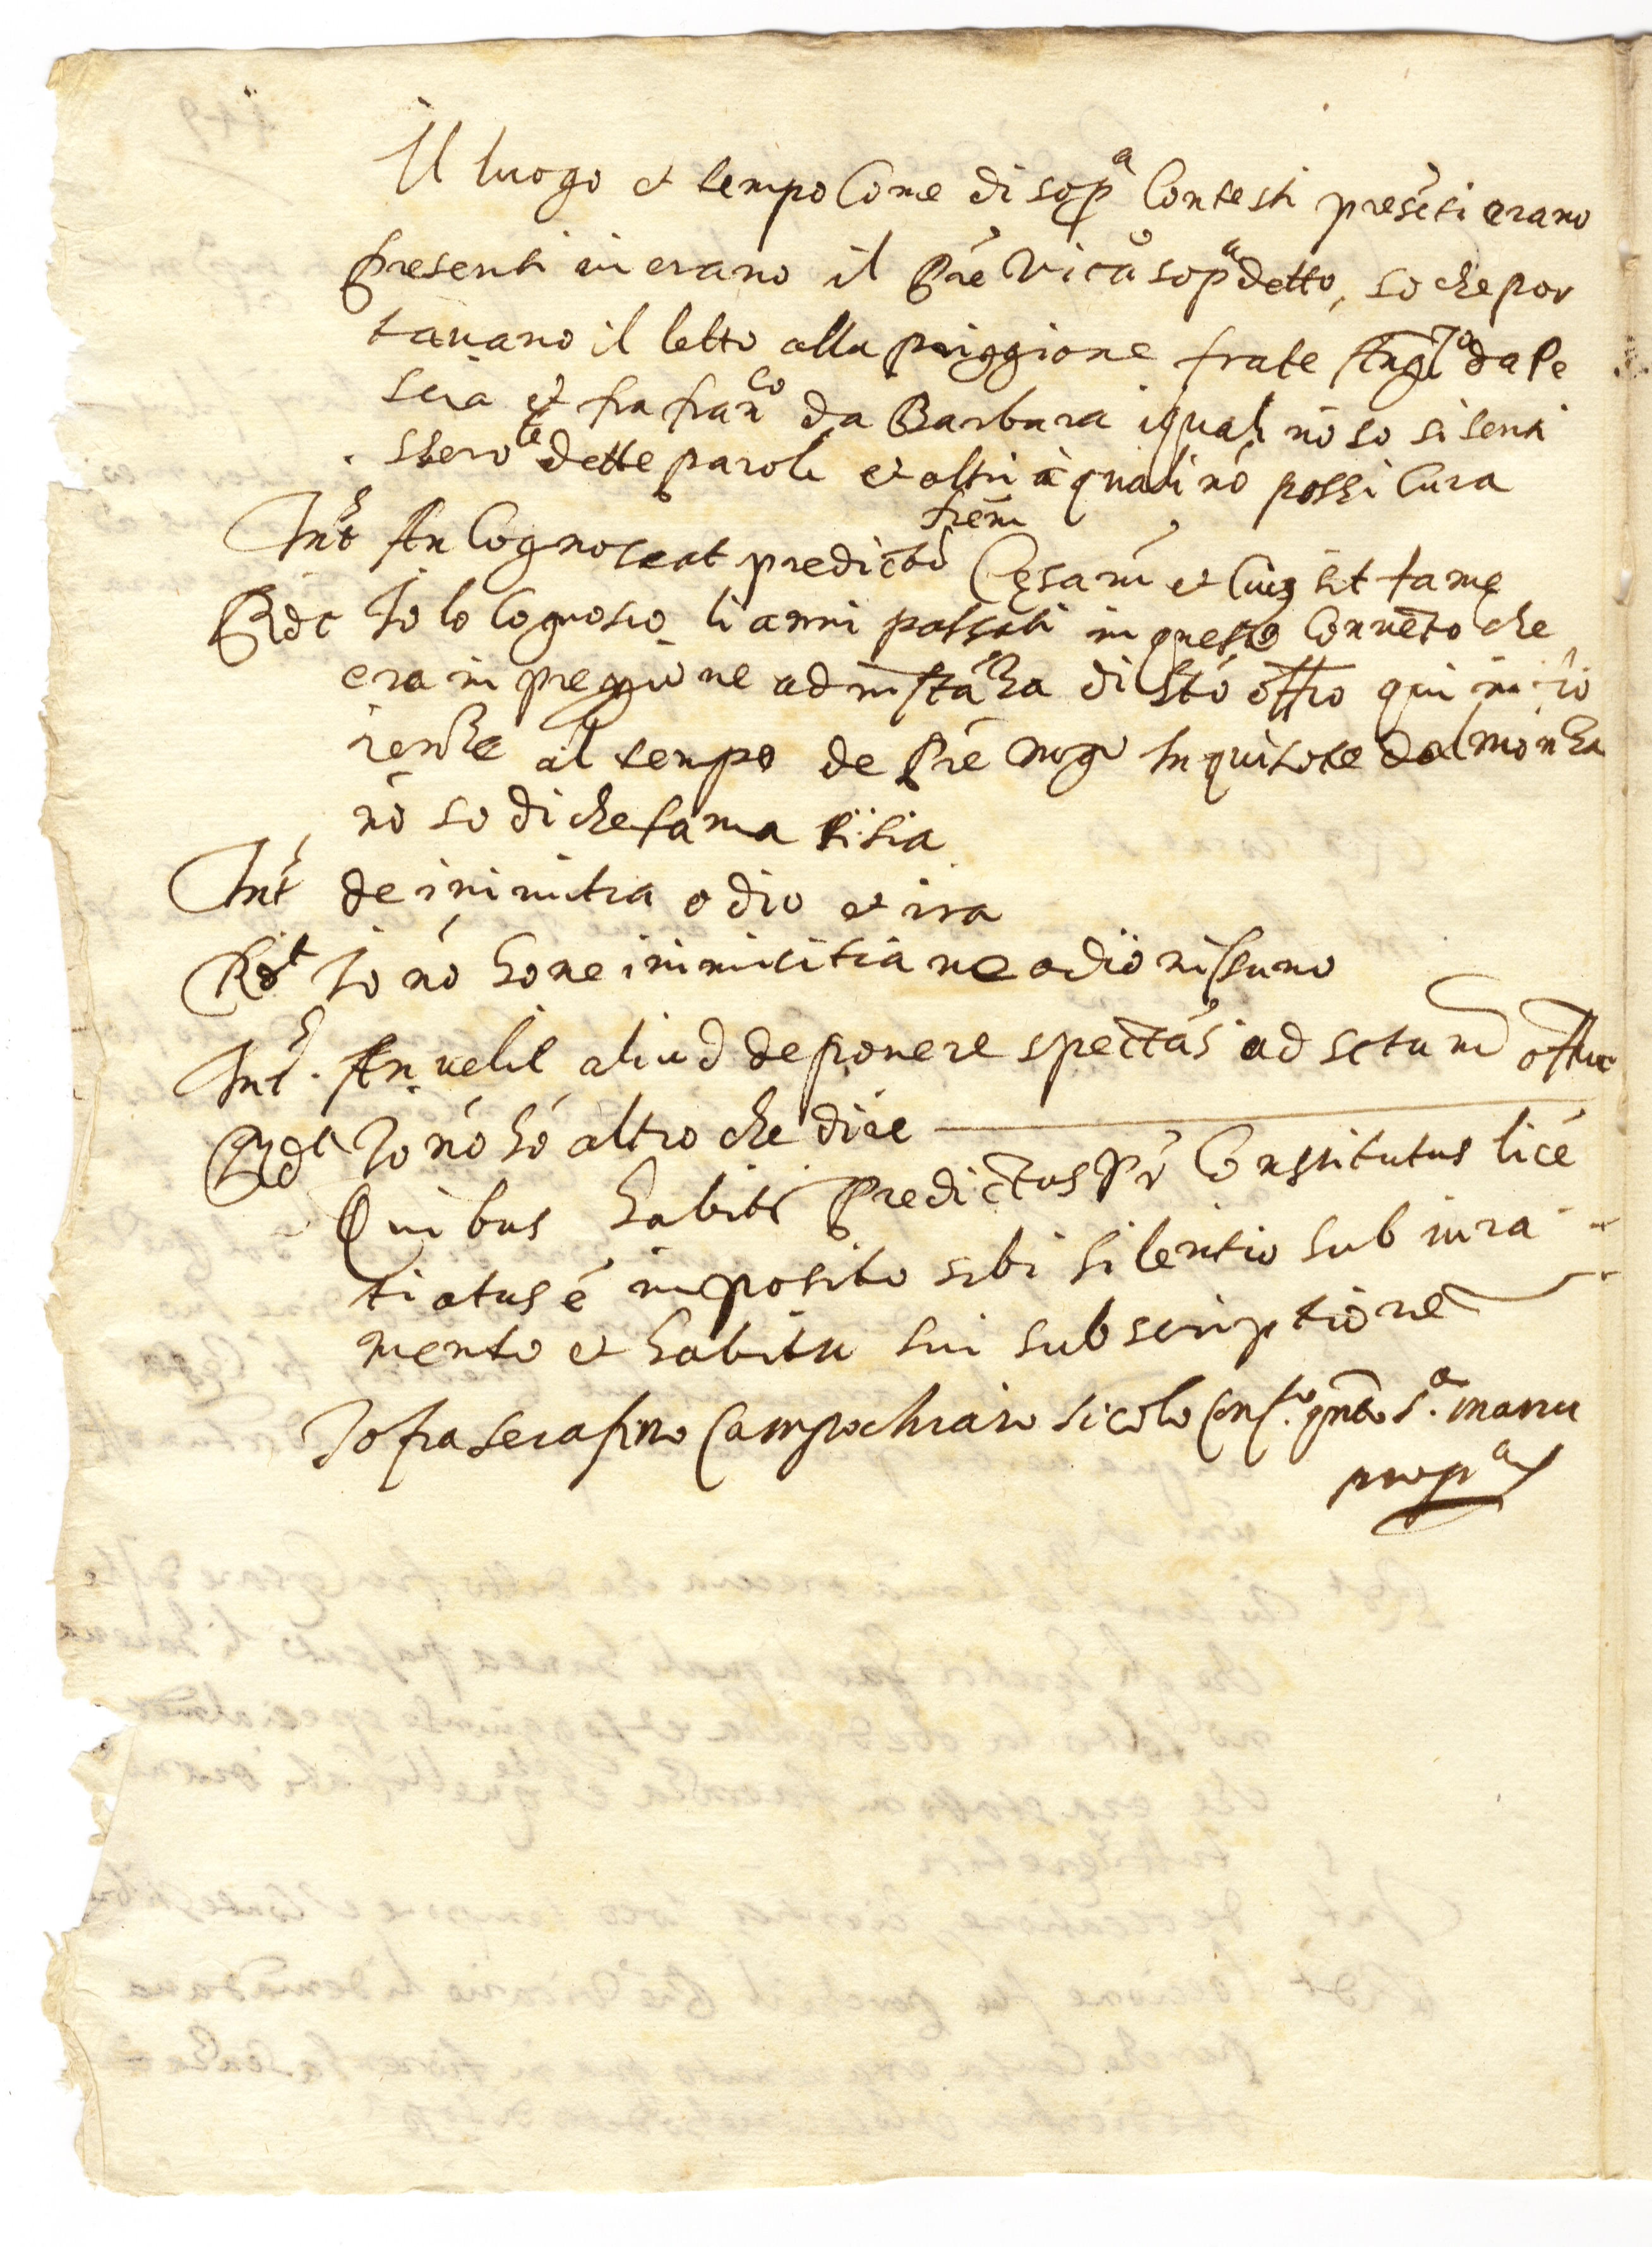 Il luogo et tempo Come di sop^a Contesti presẽti erano
presenti ui erano il Prẽ Vic^o sop^a detto, so che por
tauano il letto alla priggione frate Ang^lo da Pe
scia et fra fran^co da Barbara i quali nõ so si senti
. stero le dette parole et altri à quali nõ possi Cura
Int^s An Cognoscat predictũ frẽm Cęsarẽ et Cuius sit famę
Rdt Io lo Cognosco li anni passati in questo Conuẽto che
era in preggione ad instãtia di S^to offio qui in fio
renze al tempo de Prẽ mgr̃ Inquisitore dal monza
nõ so di che fama si sia
Int^s de inimicitia odio et ira
Rd^t Io nõ ho ne inimicitia ne odio nissuno
Int^s. An uelit aliud deponere spectãs ad sctum offiu
Rd^t Io nõ hò altro che dire
Quibus habitis Predictus Pr̃ Constitutus licẽ
tiatus ẽ imposito sibi silentio sub iura
mento et habita sui subscriptione
Io fra serafino Campochiaro sicolo s.^a manu
prop^a